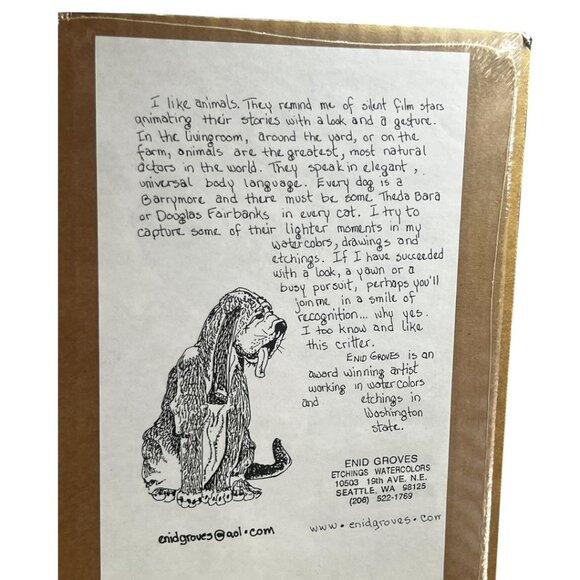 I like animals. They remind me of silent film stars
animating their stories with a look and a gesture.
In the livingroom, around the yard, or on the
farm, animals are the greatest, most natural
actors in the world. They speak in elegant,
universal body language. Every dog is a
Barrymore and there must be some Theda Bara
or Douglas Fairbanks in every cat. I try to
capture some of their lighter moments in my
watercolors, drawings and
etchings. If I have succeeded
with a look, a yawn or a
busy pursuit, perhaps you'll
join me in a smile of
recognition... why yes.
I too know and like
this critter.
ENID GROVES is an
award winning artist
working in watercolors
and etchings in
Washington
state.
ENID GROVES
ETCHINGS WATERCOLORS
10503 19th AVE. N.E.
SEATTLE, WA 98125
(206) 522-1769
enidgroves@aol.com
www.enidgroves.com